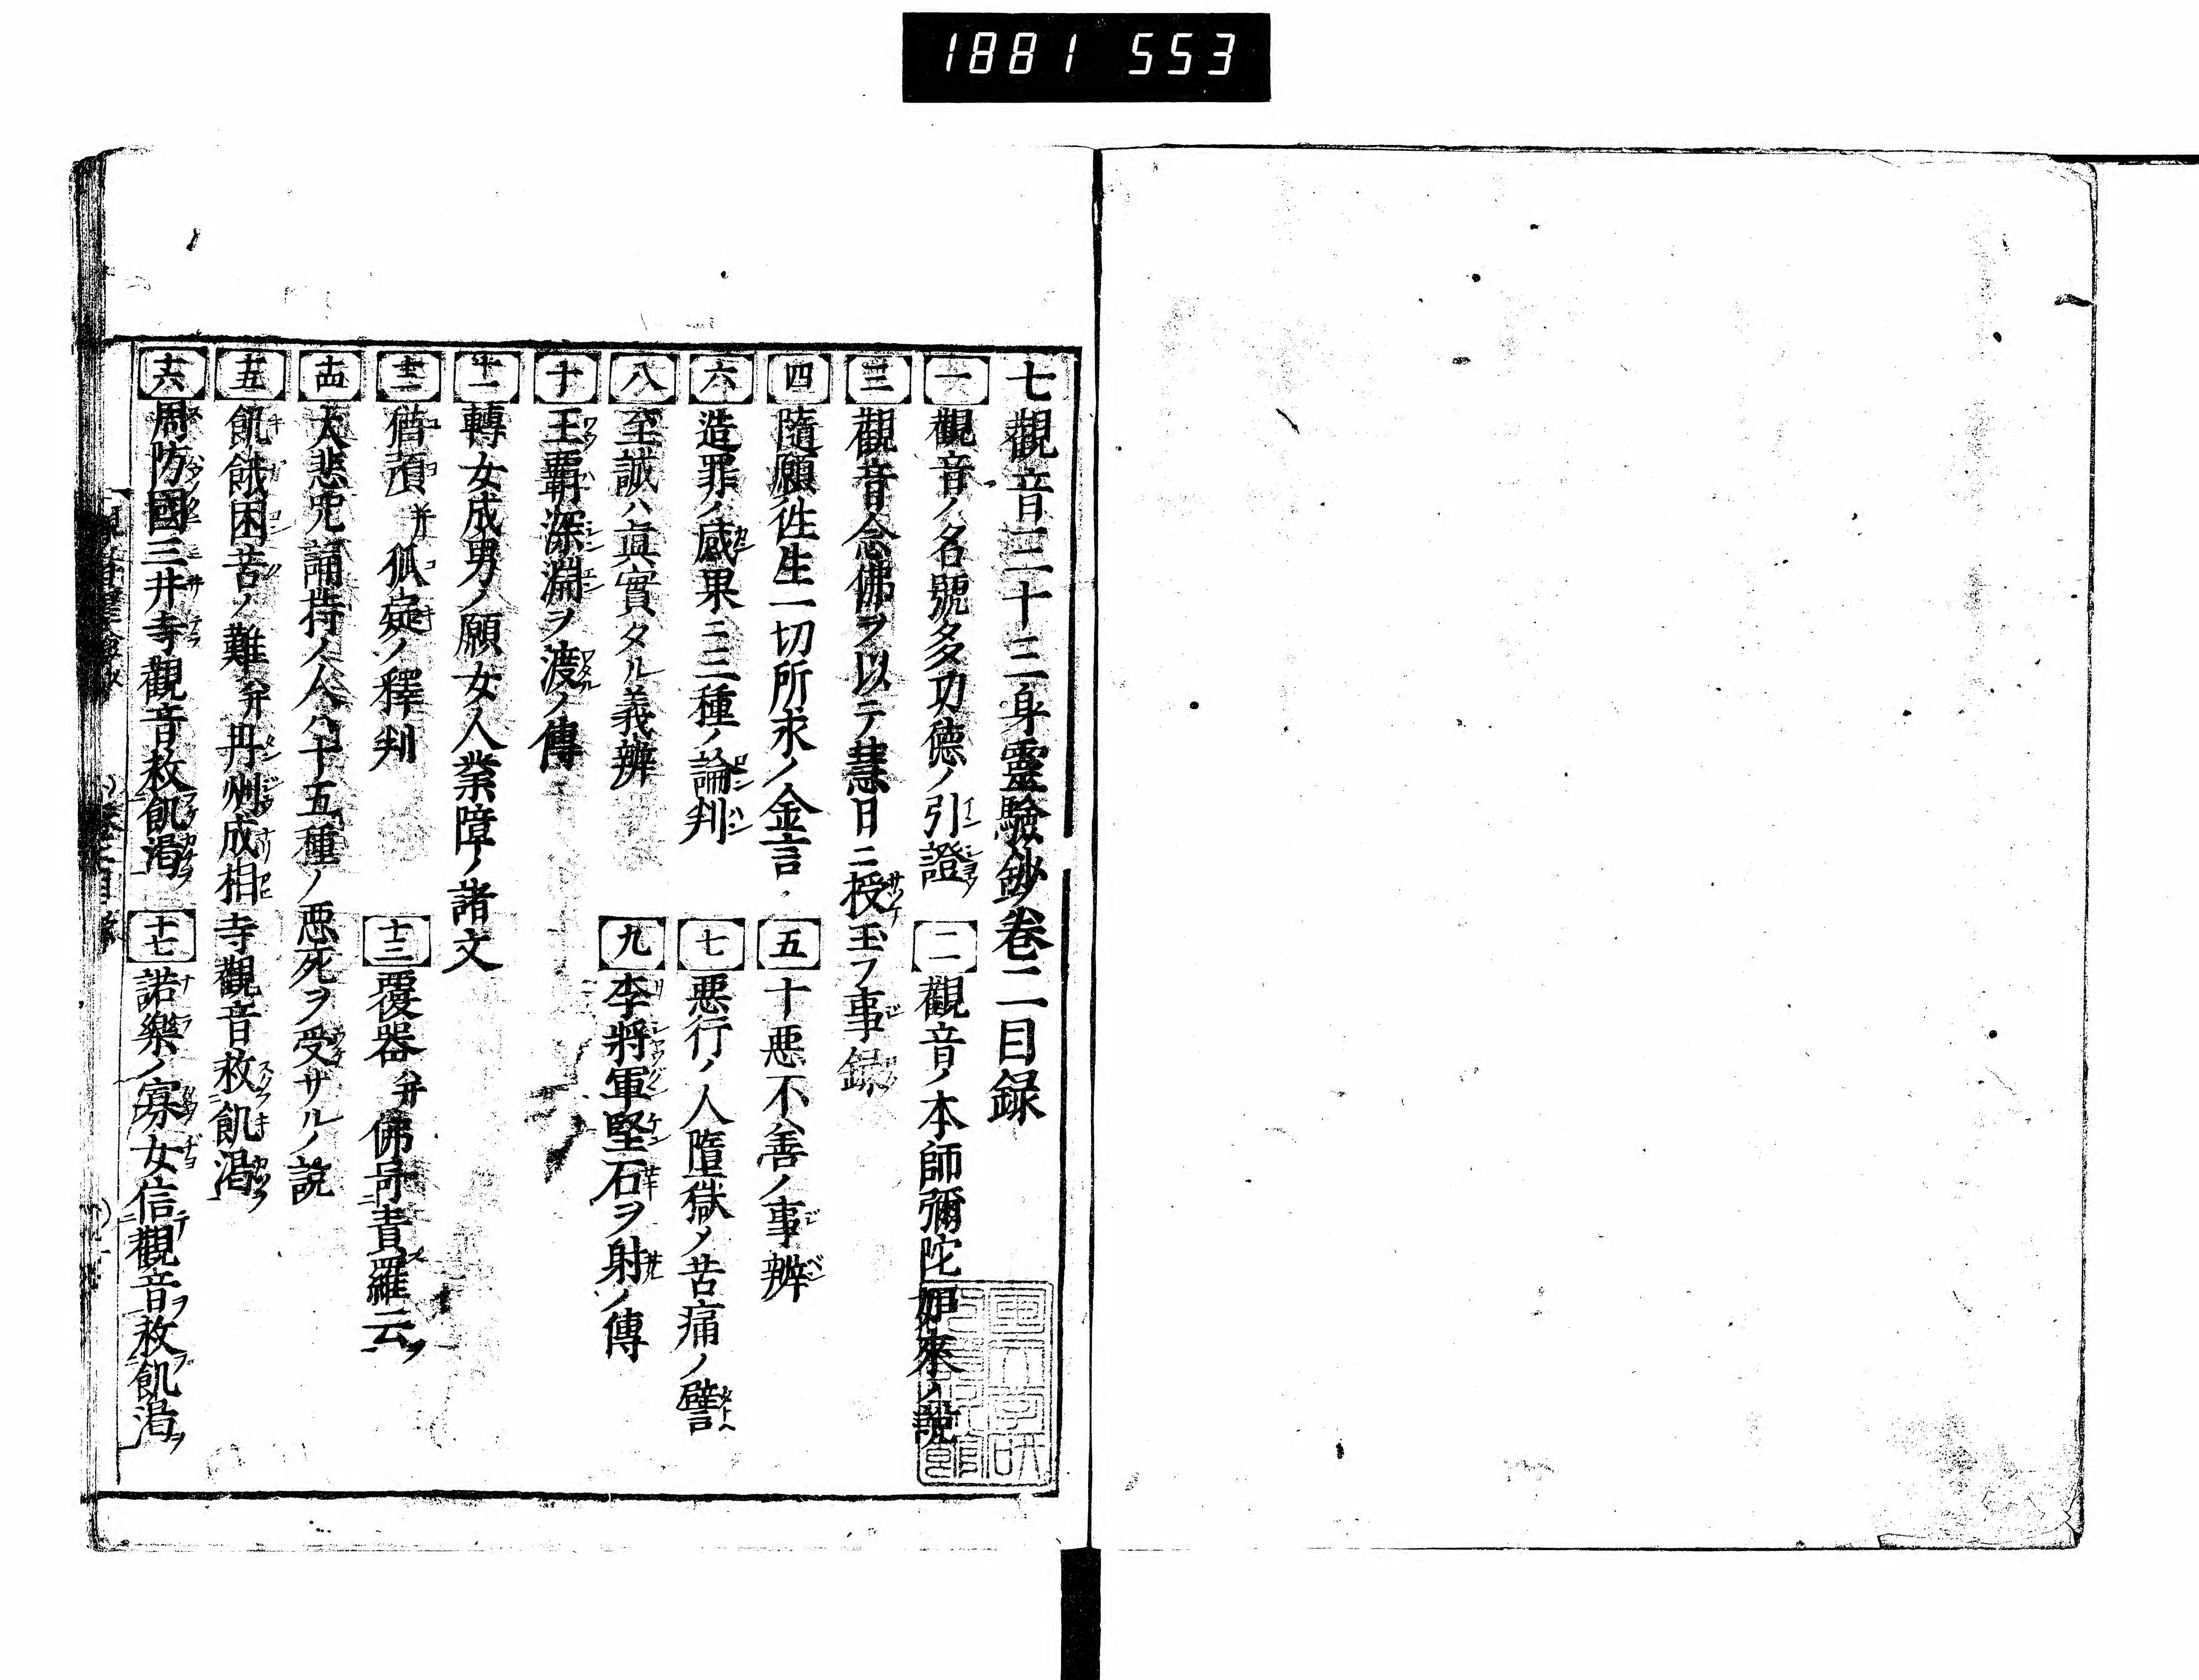 1881 553
七觀音三十三身靈驗鈔卷二目録
一 觀音ノ名號多功德ノ引證 二 觀音ノ本師彌陀如來ノ說
三 觀音念佛ヲ以テ慧日ニ授玉フ事録
四 隨願徃生一切所求ノ金言 五 十惡不善ノ事辨
六 造罪ノ感果ニ三種ノ論判 七 惡行ノ人墮獄ノ苦痛ノ譬
八 至誠ハ眞實タル義辨 九 李將軍堅石ヲ射ノ傳
十 王覇深淵ヲ渡ノ傳
十一 轉女成男ノ願女人業障ノ諸文
十二 猶蕷并狐疑ノ釋判 十三 覆器并佛呵責羅云
十四 大悲咒誦持ノ人八十五種ノ惡死ヲ受サルノ說
十五 飢餓困苦ノ難并丹州成相寺觀音救飢渇
十六 周防國三井寺觀音救飢渇 十七 諾樂ノ寡女信觀音救飢渇